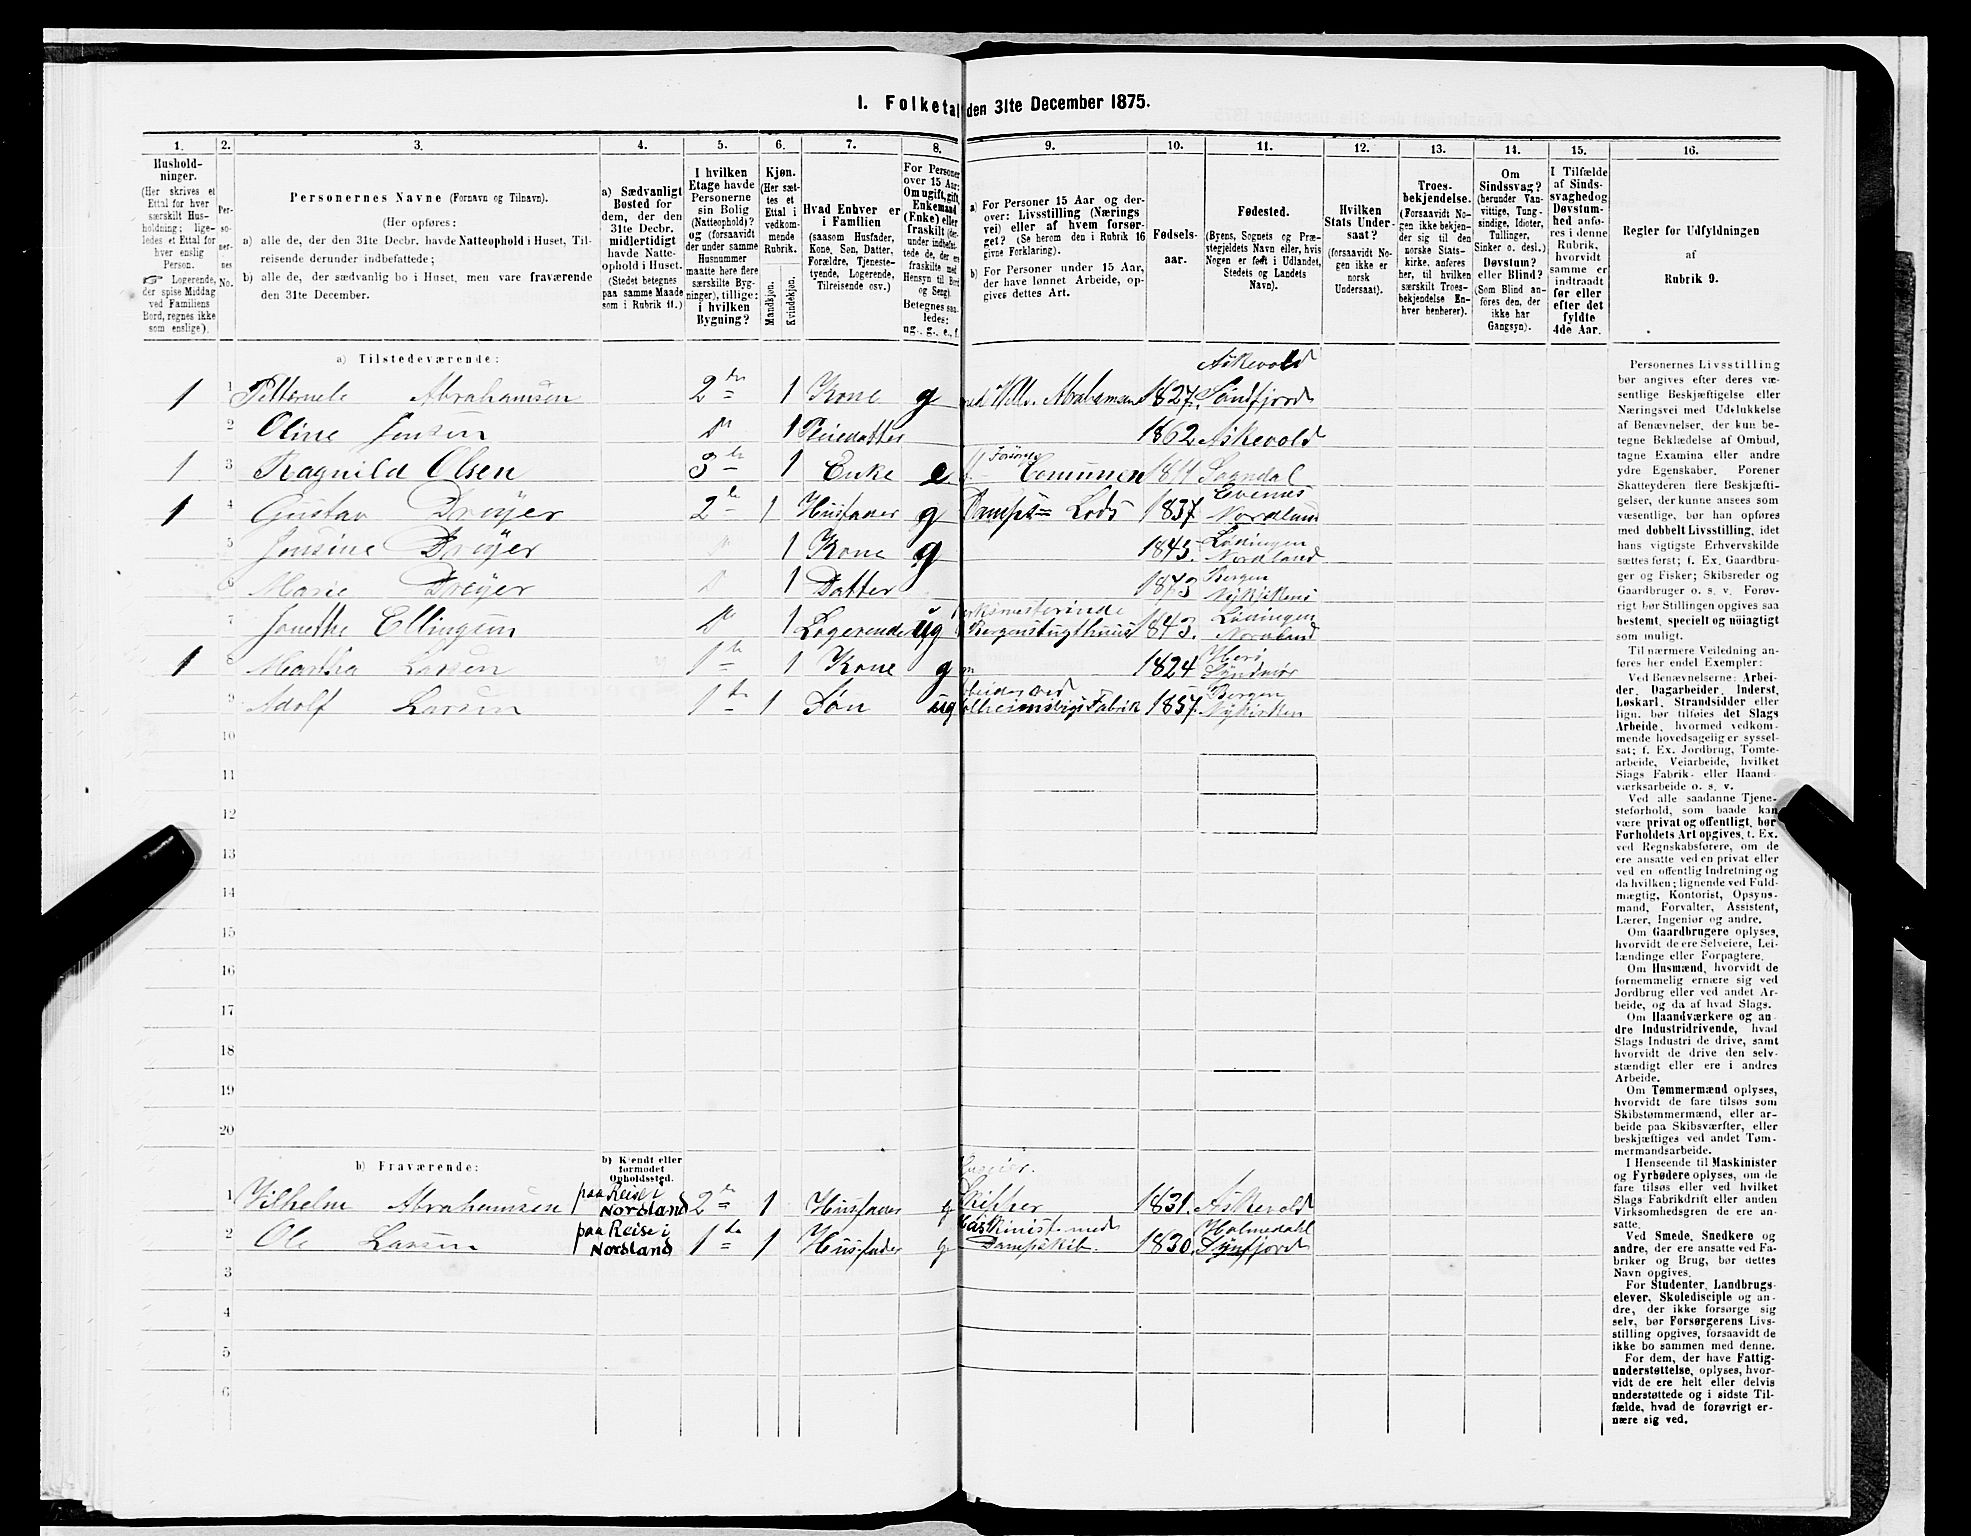 1. Folketal den 31te December 1875.
1. 2. 3. 4. 5. 6. 7. 8. 9. 10. 11. 12. 13. 14. 15. 16.
Hushold-
ninger.
(Her skrives et
Ettal for hver
særskilt Hus-
holdning; lige-
ledes et Ettal for
hver enslig
Person.
Logerende,
der spise Middag
ved Familiens
Bord, regnes ikke
som enslige).
Per-
so-
ner-
nes
No.
Personernes Navne (Fornavn og Tilnavn).
(Her opføres:
a) alle de, der den 31te Decbr. havde Natteophold i Huset, Til-
reisende derunder indbefattede;
b) alle de, der sædvanlig bo i Huset, men vare fraværende
den 31te December.
a) Sædvanligt
Bosted for
dem, der den
31te Decbr.
midlertidigt
havde Natte-
ophold i Huset.
(Stedet betegnes
paa samme Maade
som i Rubrik 11.)
I hvilken
Etage havde
Personerne
sin Bolig
(Natteophold)?
og (forsaavidt
der under samme
Husnummer
maatte høre flere
særskilte Byg-
ninger), tillige:
i hvilken
Bygning?
Kjøn.
(Her sæt-
tes et
Ettal i
vedkom-
mende
Rubrik.
Mandkjøn.
Kvindekjøn.
Hvad Enhver er
i Familien
(saasom Husfader,
Kone, Søn, Datter,
Forældre, Tjeneste-
tyende, Logerende,
Tilreisende osv.)
For Personer
over 15 Aar:
Om ugift, gift,
Enkemand
(Enke) eller
fraskilt (der-
under indbefat-
tede de, der ere
fraskilte med
Hensyn til Bord
og Seng).
Betegnes saa-
ledes:
ug., g., e., f.
a) For Personer 15 Aar og der-
over: Livsstilling (Nærings
vei) eller af hvem forsør-
get? (Se herom den i Rubrik 16
givne Forklaring).
b) For Personer under 15 Aar,
der have lønnet Arbeide, op-
gives dettes Art.
Fødsels-
aar.
Fødested.
(Byens, Sognets og Præ-
stegjeldets Navn eller, hvis
Nogen er født i Udlandet,
Stedets og Landets
Navn).
Hvilken
Stats Under-
saat?
(forsaavidt No-
gen ikke er
norsk
Undersaat).
Troes-
bekjendelse.
(Forsaavidt No-
gen ikke bekjen-
der sig til den
norske Stats-
kirke, anføres
her, til hvilken
særskilt Troes-
bekjendelse En-
hver henhører).
Om
Sindssvag?
(herunder Van-
vittige, Tung-
sindige, Idioter,
Tullinger,
Sinker o. desl.)
Døvstum?
eller Blind?
(Som Blind an-
føres den, der
ikke har
Gangsyn).
I Tilfælde
af Sinds-
svaghed og
Døvstum-
hed anfø-
res i denne
Rubrik,
hvorvidt
samme er
indtraadt
før eller
efter det
fyldte
4de Aar.
Regler for Udfyldningen
af
Rubrik 9.
a) Tilstedeværende:
1 1 Abrahamsen 2 1 Kone g Abrahamsen 1827. Askevold Søndfjord
2 Oline Jensen 1 Pleiedatter 1862 Askevold
1 3 Ragnild Olsen 3 1 Enke e Comunen Sogndal
1 4 Gustav Dreyer 2 1 Husfader g Dampsk= Lods 1837 Evenes Nordland
5 Jensine Dreyer 1 Kone g 1843. Lødingen Nordland
6 Marie Dreyer 1 Datter 1873 Bergen Nykirken
7 Ellingsen 1 Logerende ug Bergenstugthuus 1843. Lødingen Nordland
1 8 Martha Larsen 1 1 Kone g 1824 Herø Syndmør
9 Adolf Larsen 1 1 Søn ug Arbeider ved Solheimsvigs Fabrik 1857. Bergen Nykirken
10
11
12
13
14
15
16
17
18
19
20
b) Fraværende:
b) Kjendt eller
formodet
Opholdssted.
1 Vilhelm Abrahamsen paa Reise i Nordland 2 1 Husfader g Skipper 1831. Askevold
2 Ole Larsen paa Reise i Nordland 1 1 Husfader g Maskinist med Dampskib. 1830. Holmedahl Synfjord
3
4
5
6
Personernes Livsstilling
bør angives efter deres væ-
sentlige Beskjæftigelse eller
Næringsvei med Udelukkelse
af Benævnelser, der kun be-
tegne Beklædelse af Ombud,
tagne Examina eller andre
ydre Egenskaber. Forener
Skatteyderen flere Beskjæfti-
gelser, der kunne ansees som
væsentlige, bør han opføres
med dobbelt Livsstilling, idet
hans vigtigste Erhvervskilde
sættes først; f. Ex. Gaardbru-
ger og Fisker; Skibsreder og
Gaardbruger o. s. v. Forøv-
rigt bør Stillingen opgives saa
bestemt, specielt og nøiagtigt
som muligt.
Til nærmere Veiledning an-
føres her endel Exempler:
Ved Benævnelserne: Arbei-
der, Dagarbeider, Inderst,
Løskarl, Strandsidder eller
lign. bør tilføies det Slags
Arbeide, hvormed vedkom-
mende hovedsagelig er syssel-
sat; f. Ex. Jordbrug, Tomte-
arbeide, Veiarbeide, hvilket
Slags Fabrik- eller Haand-
værksarbeide o. s. v.
Ved alle saadanne Tjene-
steforhold, som baade kan
være privat og offentligt, bør
Forholdets Art opgives, t. Ex.
ved Regnskabsførere, om de
ere ansatte ved en privat eller
ved en offentlig Indretning og
da hvilken; lignende ved Fuld-
mægtig, Kontorist, Opsyns-
mand, Forvalter, Assistent,
Lærer, Ingeniør og andre.
Om Gaardbrugere oplyses,
hvorvidt de ere Selveiere, Lei-
lændinge eller Forpagtere.
Om Husmænd, hvorvidt de
fornemmelig ernære sig ved
Jordbrug eller ved andet Ar-
beide, og da af hvad Slags.
Om Haandværkere og an-
dre Industridrivende, hvad
Slags Industri de drive, samt
hvorvidt de drive den selv-
stændigt eller ere i andres
Arbeide.
Om Tømmermænd oplyses,
hvorvidt de fare tilsøs som
Skibstømmermænd, eller ar-
beide paa Skibsværfter, eller
beskjæftiges ved andet Tøm-
mermandsarbeide.
I Henseende til Maskinister
og Fyrbødere oplyses, om de
fare tilsøs eller ved hvilket
Slags Fabrikdrift eller anden
Virksomhedsgren de ere an-
satte.
Ved Smede, Snedkere og
andre, der ere ansatte ved Fa-
briker og Brug, bør dettes
Navn opgives.
For Studenter, Landbrugs-
elever, Skoledisciple og an-
dre, der ikke forsørge sig
selv, bør Forsørgerens Livs-
stilling opgives, forsaavidt de
ikke bo sammen med denne.
For dem, der have Fattig-
understøttelse, oplyses, hvor-
vidt de ere helt eller delvis
understøttede og i sidste Til-
fælde, hvad de forøvrigt er-
nære sig ved.